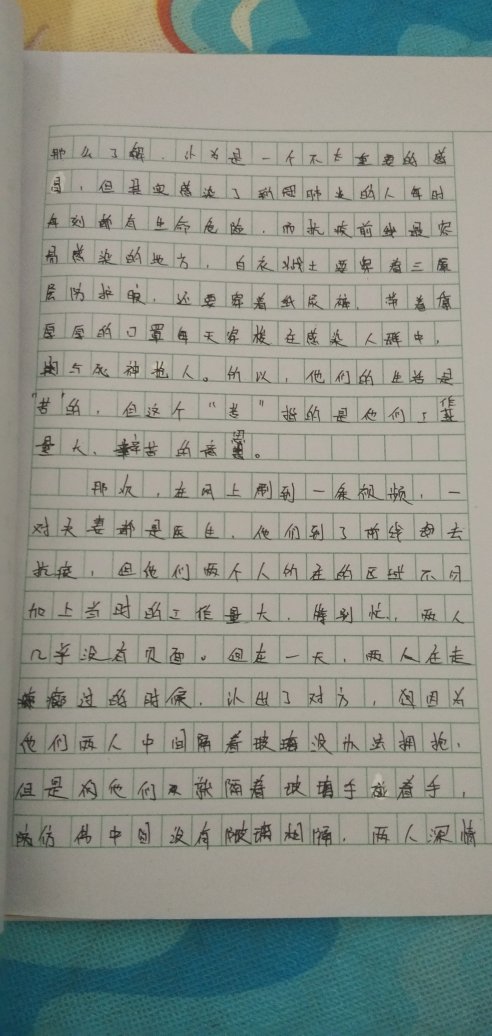 那么了解,认为是一个不太重要的感
冒,但其实感染了新冠肺炎的人每时
每刻都有生命危险,而抗疫前线是容
易感染的地方,白衣战士要穿着三层
层防护服,还要穿着纸尿裤,带着厚
厚厚的口罩每天穿梭在感染人群中,
与死神抢人。所以,他们的生活是
"苦"的,但这个"苦"指的是他们工作
量大、辛苦的意思。
那次,在网上刷到一条视频,一
对夫妻都是医生,他们到了前线去
抗疫,但他们两个人所在的区域不同
加上当时的工作量大,特别忙,两人
几乎没有见面。但在一天,两人在走
廊过的时候,认出了对方,但因为
他们两人中间隔着玻璃没办法拥抱,
但是他们就隔着玻璃手着手,
仿佛中间没有玻璃相隔,两人深情